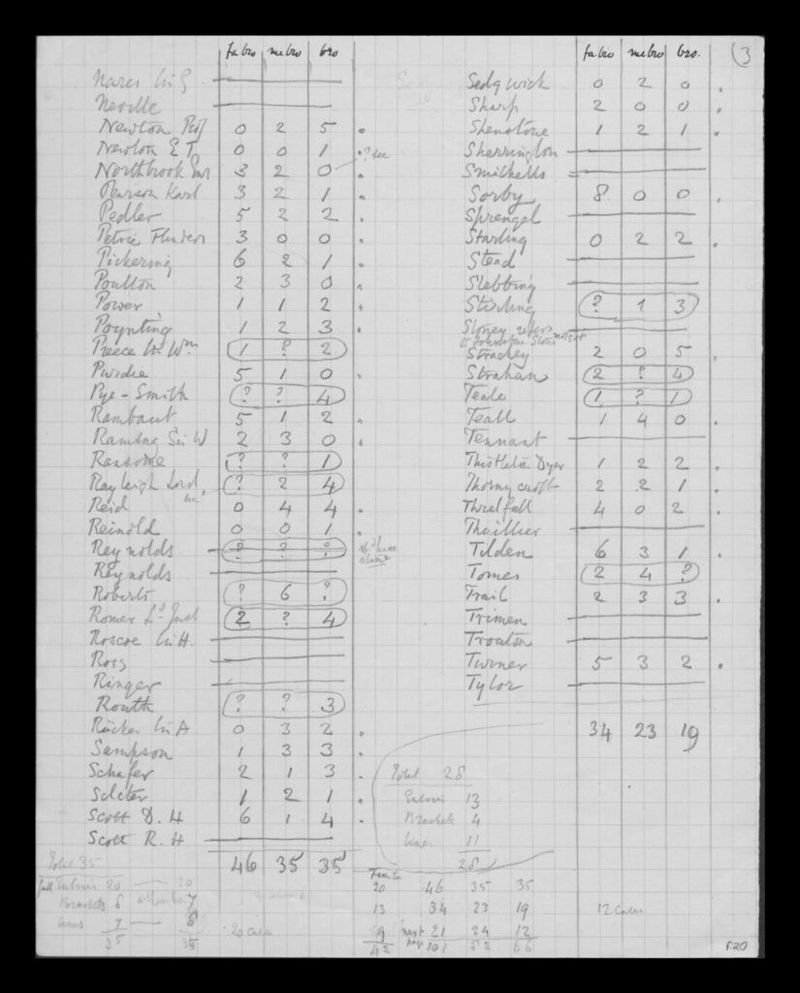 fa bro me bro bro
Nares
Neville
Newton Prof 0 2 5 .
Newton E T 0 0 1 .
Northbrook 3 2 0 .
Pearson Karl 3 2 1 .
Pedler 5 2 2 .
Petrie Flinders 3 0 0 .
Pickering 6 2 1 .
Poulton 2 3 0 .
Power 1 1 2 .
Poynting 1 2 3 .
Preece Sir Wm 1 ? 2
Purdie 5 1 0 .
Pye-Smith ? ? 4
Rambaut 5 1 2 .
Ramsay Sir W 2 3 0 .
Ransome ? ? 1
Rayleigh Lord ? 2 4
Reid 0 4 4 .
Reinold 0 0 1 .
Reynolds ? ? ?
Reynolds
Roberts ? 6 ?
Romer Ld Just 2 ? 4
Roscoe Sir H.
Ross
Ringer
Routh ? ? 3
Rücker Sir A 0 3 2 .
Sampson 1 3 3 .
Schafer 2 1 3 .
Sclater 1 2 1 .
Scott D. H 6 1 4 .
Scott R. H
46 35 35
Total 35
full Entries 20 20
Brackets 8 7
lines 7 8
35 35
20 cases
fa bro me bro bro.
3
Sedgwick 0 2 0 .
Sharp 2 0 0 .
Shenstone 1 2 1 .
Sherrington
Smithells
Sorby 8 0 0 .
Sprengel
Starling 0 2 2 .
Stead
Stebbing
Stirling ? 1 3
Stoney refers
to Johnstone Stoney
Strachey 2 0 5 .
Strahan 2 ? 4
Teale 1 ? 1
Teall 1 4 0 .
Tennant
Thistleton Dyer 1 2 2 .
Thornycroft 2 2 1 .
Threlfall 4 0 2 .
Thuillier
Tilden 6 3 1 .
Tomes 2 4 ?
Trail 2 3 3 .
Trimen
Trouton
Turner 5 3 2 .
Tylor
34 23 19
Total 28
Entries 13
Brackets 4
lines 11
28
20 46 35 35
13 34 23 19 12 cases
9 next page 21 24 12
42 101 82 66